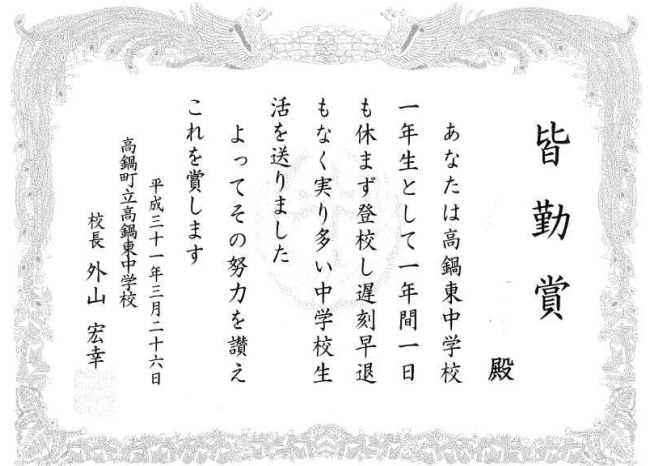 皆勤賞
殿
あなたは高鍋東中学校
一年生として一年間一日
も休まず登校し遅刻早退
もなく実り多い中学校生
活を送りました
よってその努力を讃え
これを賞します
平成三十一年三月二十六日
高鍋町立高鍋東中学校
校長 外山 宏幸